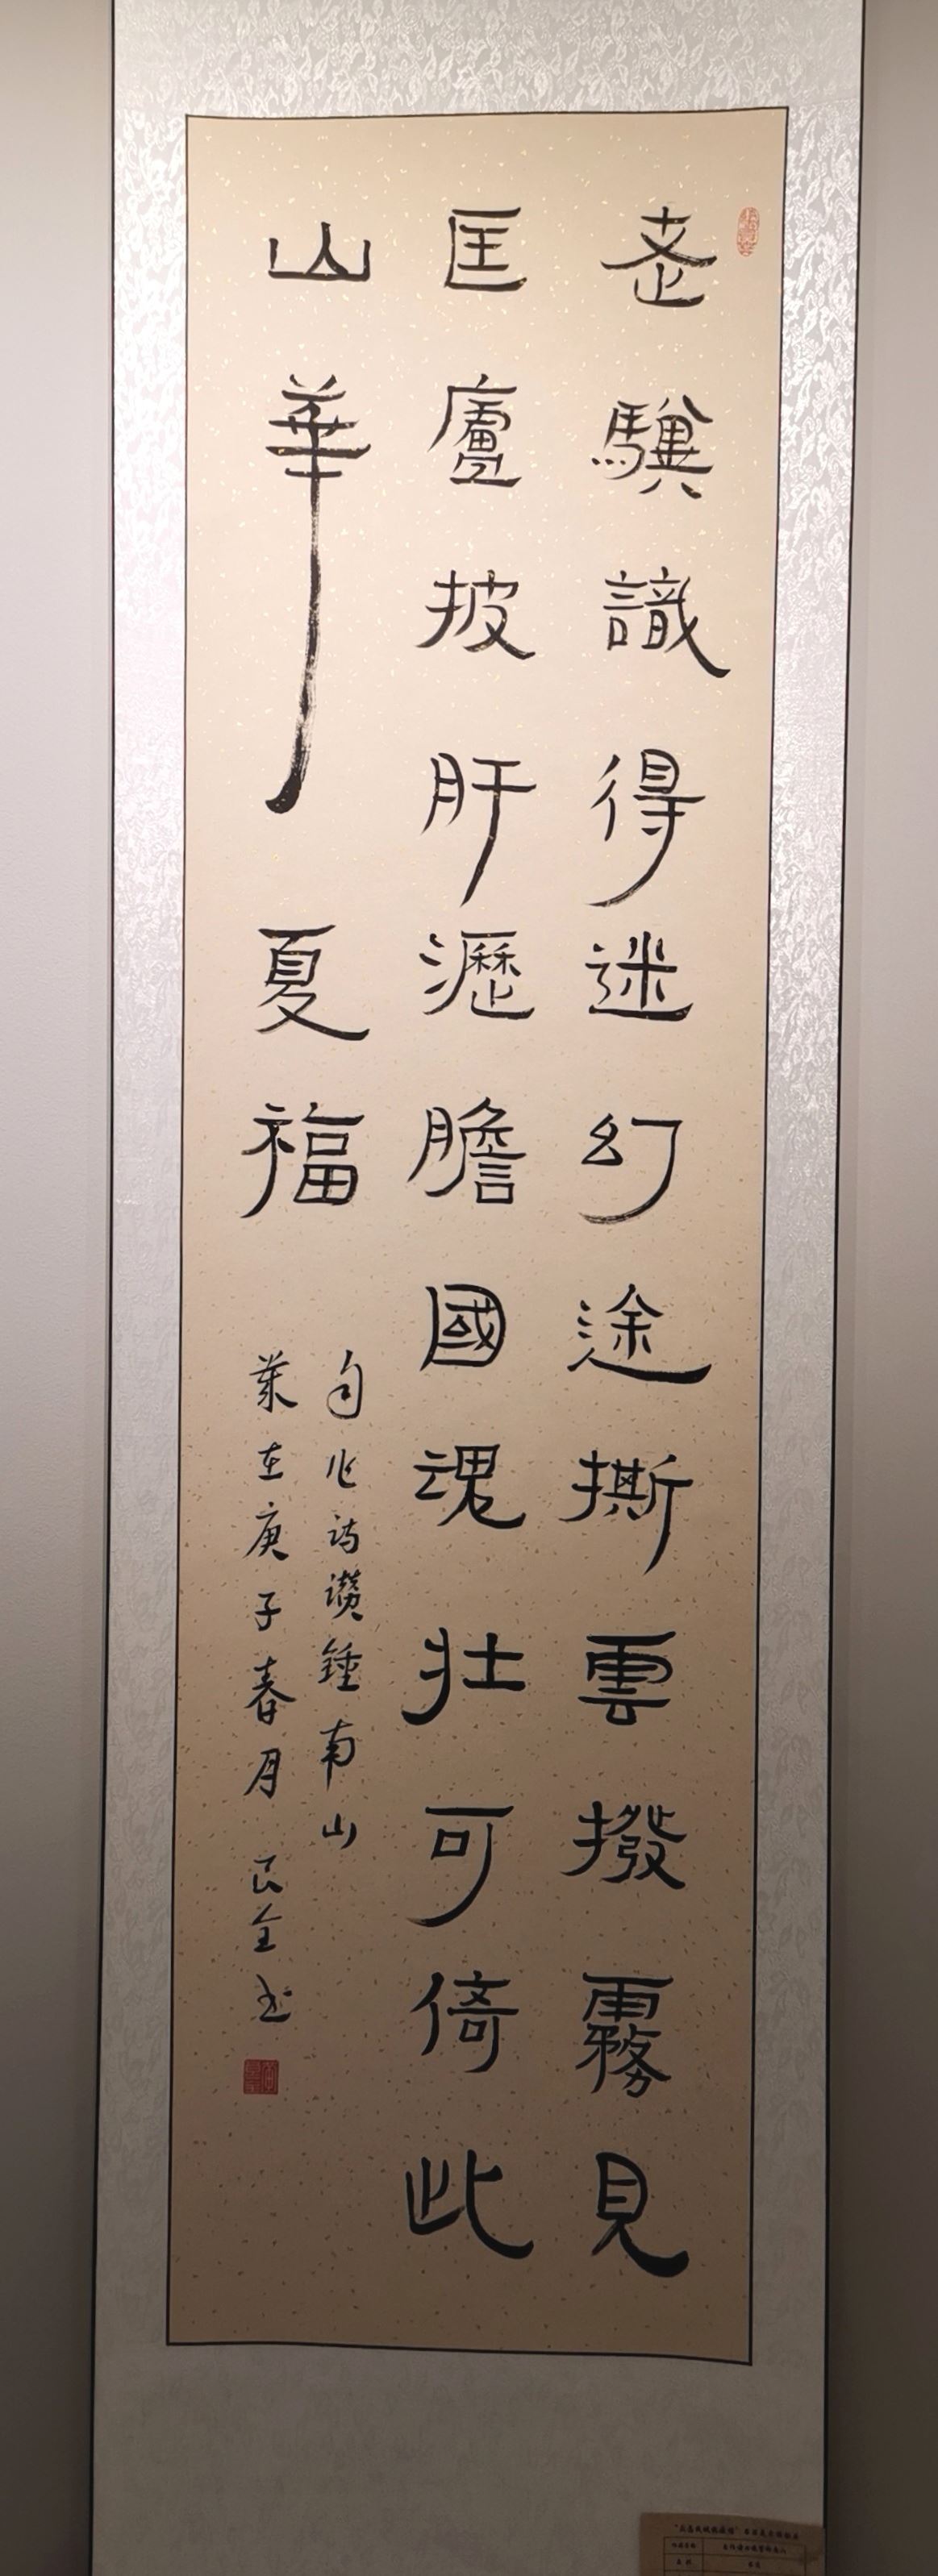 老驥識得迷幻途撕雲撥霧見
匡廬披肝瀝膽國魂壯可倚此
山華夏福
自作詩讚鍾南山
葉在庚子春月 民全书